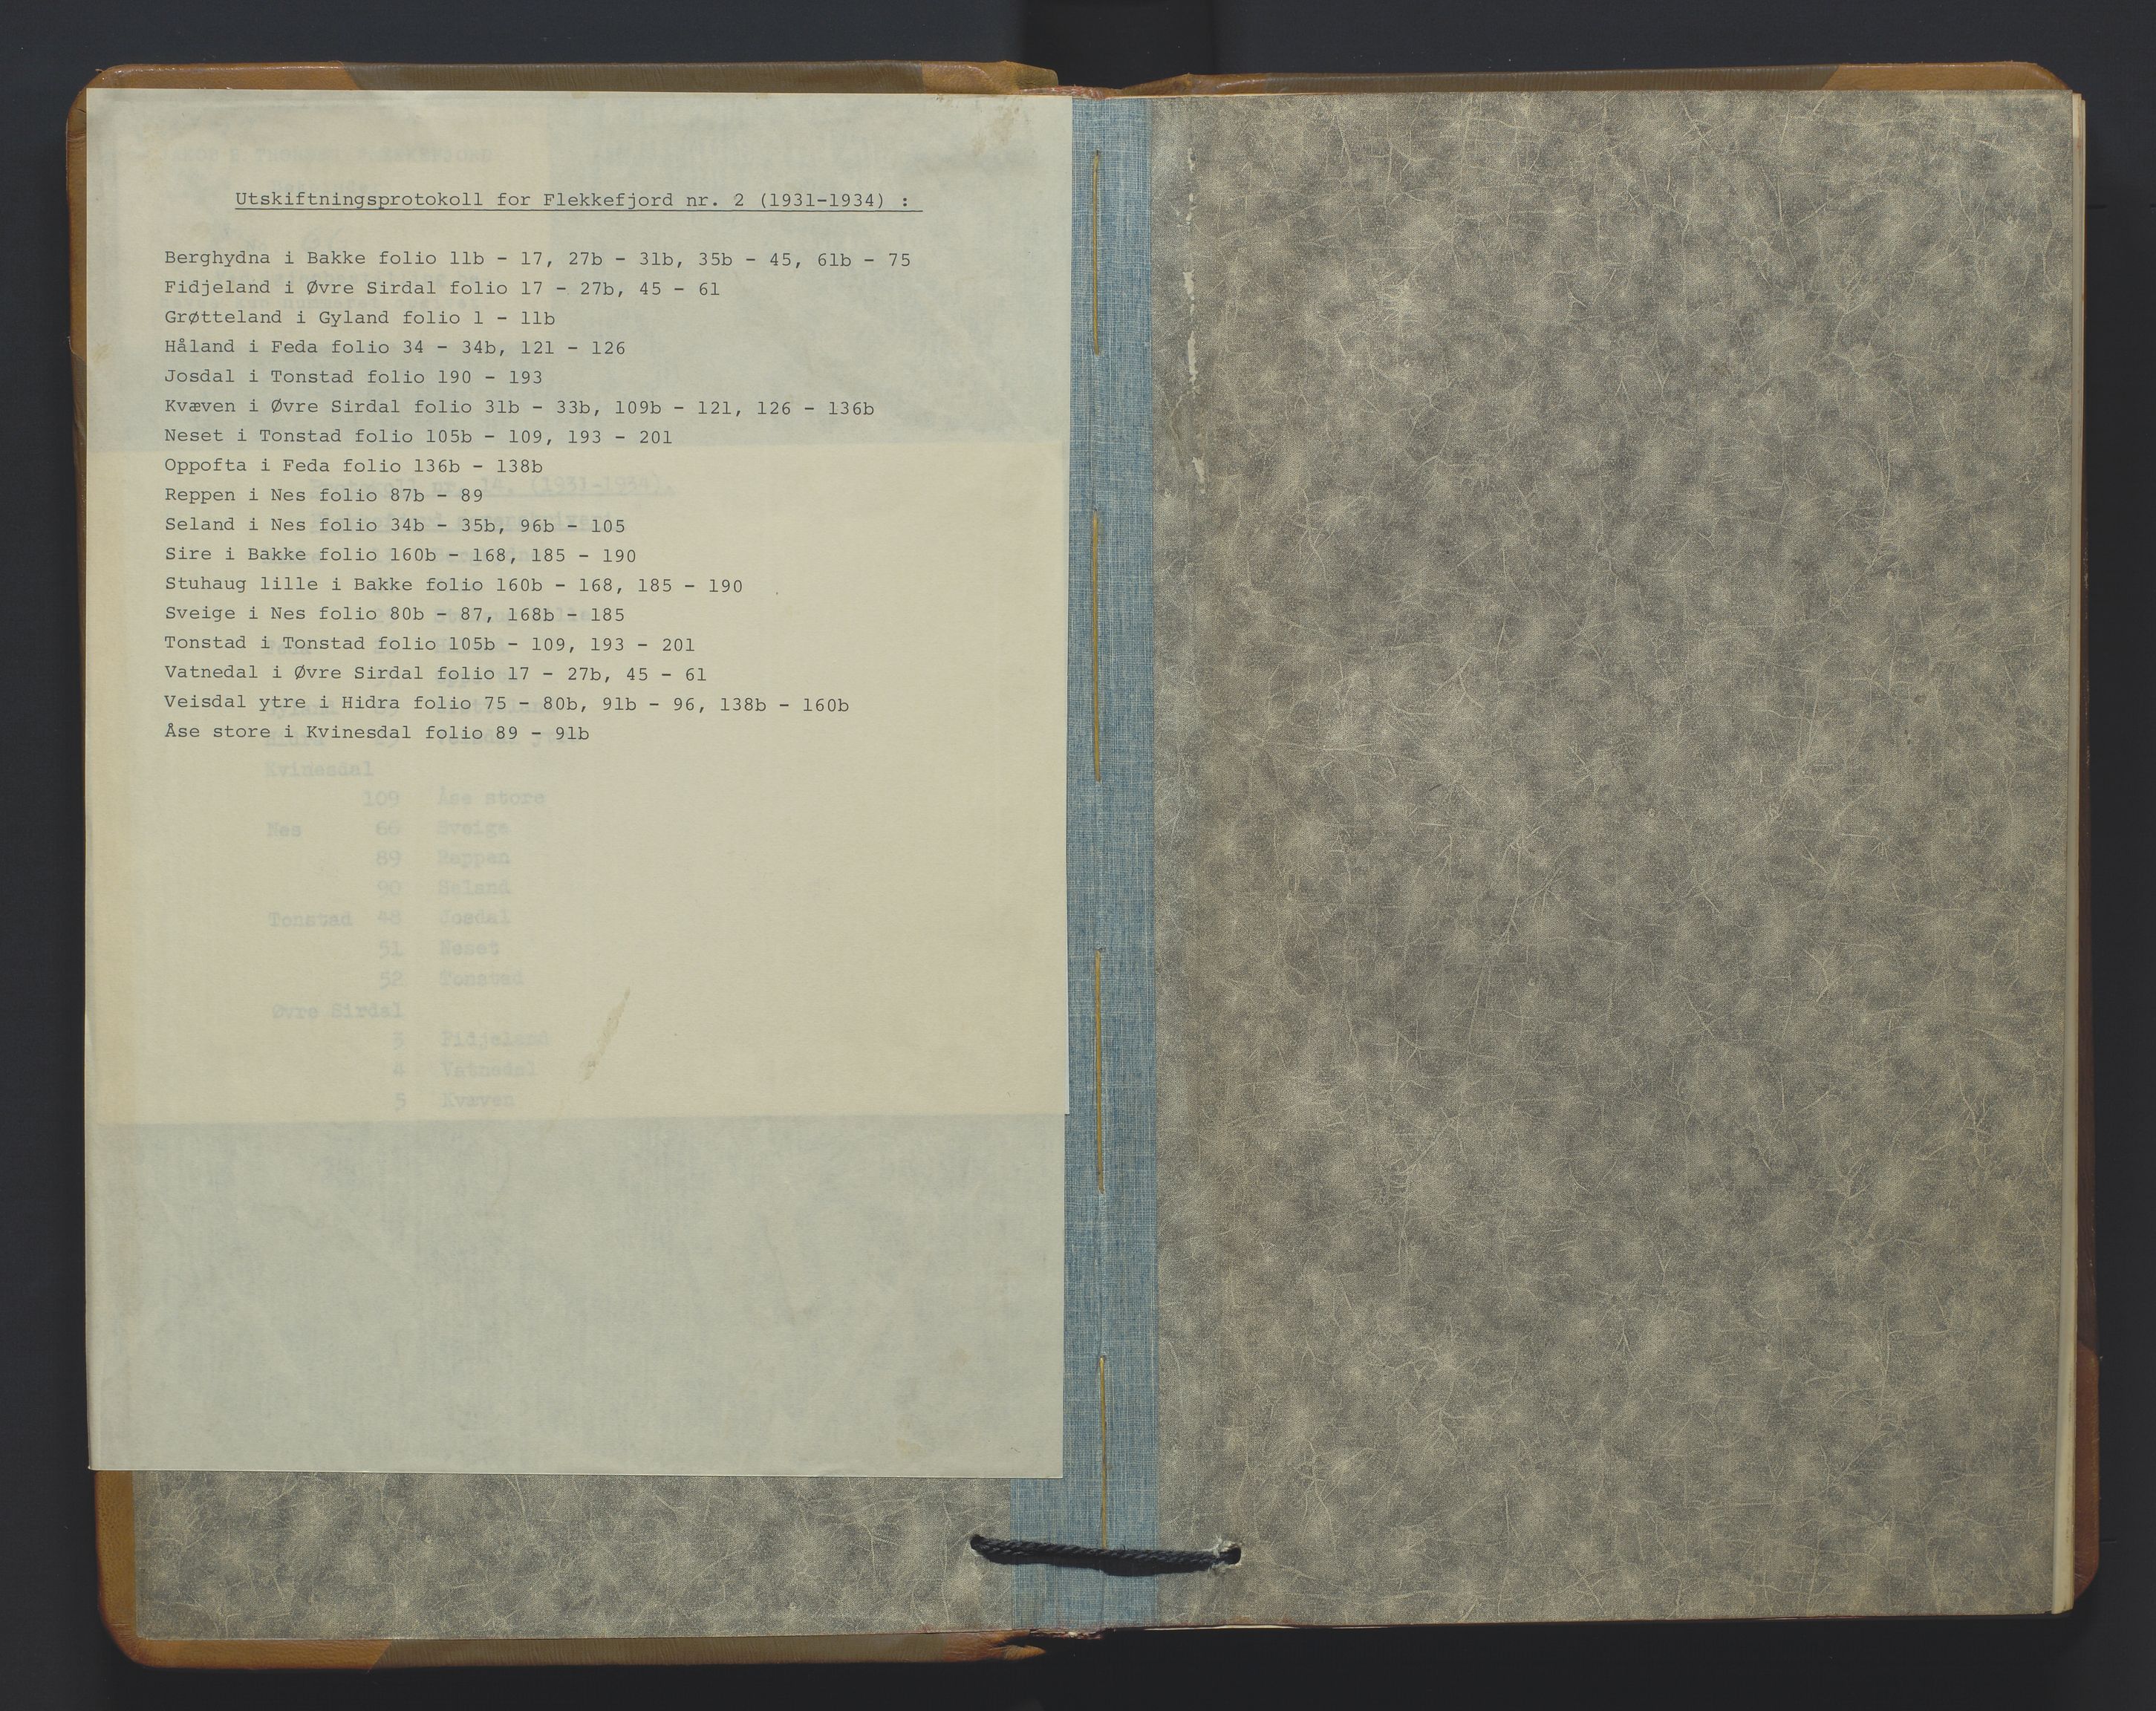 Utskiftningsprotokoll for Flekkefjord nr. 2 (1931-1934) :
Berghydna i Bakke folio 11b - 17, 27b - 31b, 35b - 45, 61b - 75
Fidjeland i Øvre Sirdal folio 17 - 27b, 45 - 61
Grøtteland i Gyland folio 1 - 11b
Håland i Feda folio 34 - 34b, 121 - 126
Josdal i Tonstad folio 190 - 193
Kvæven i Øvre Sirdal folio 31b - 33b, 109b - 121, 126 - 136b
Neset i Tonstad folio 105b - 109, 193 - 201
Oppofta i Feda folio 136b - 138b
Reppen i Nes folio 87b - 89
Seland i Nes folio 34b - 35b, 96b - 105
Sire i Bakke folio 160b - 168, 185 - 190
Stuhaug lille i Bakke folio 160b - 168, 185 - 190
Sveige i Nes folio 80b - 87, 168b - 185
Tonstad i Tonstad folio 105b - 109, 193 - 201
Vatnedal i Øvre Sirdal folio 17 - 27b, 45 - 61
Veisdal ytre i Hidra folio 75 - 80b, 91b - 96, 138b - 160b
Åse store i Kvinesdal folio 89 - 91b
Kvinesdal
109 Åse store
Nes 66 Sveige
89 Reppen
90
Tonstad 48 Josdal
51 Neset
52 Tonstad
Øvre Sirdal
3 Fidjeland
4 Vatnedal
5 Kvæven